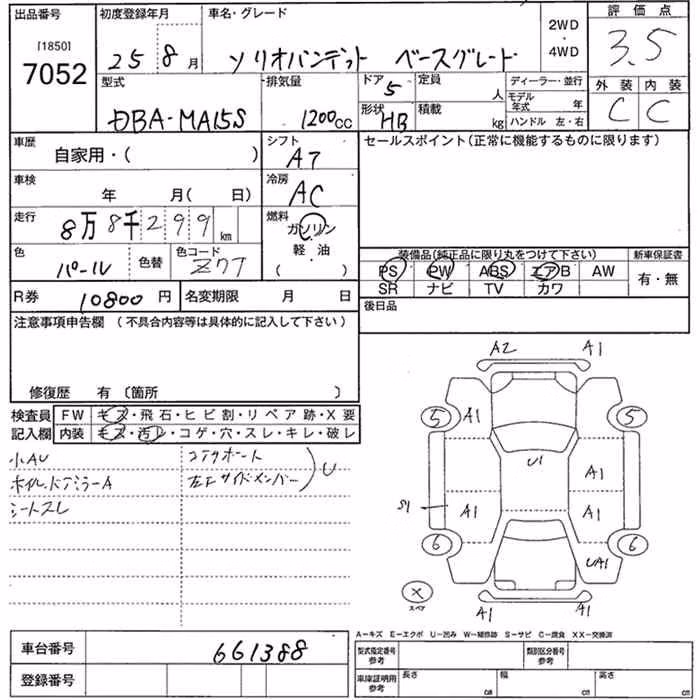 出品番号 初度登録年月 車名・グレード 2WD ・ 4WD 評価点
[1850] 7052 25 8月 ソリオバンデット ベースグレード 3.5
型式 排気量 ドア 5 定員 人 ディーラー・並行 外装 内装
DBA-MA15S 1200cc 形状 HB 積載 kg モデル年式 年 C C
ハンドル 左・右
車歴 自家用・( ) シフト A7 セールスポイント(正常に機能するものに限ります)
車検 年 月( 日) 冷房 AC
走行 8万8千299km 燃料 ガソリン
色 パール 色替 色コード Z7T 軽・油 ( )
装備品(純正品に限り丸をつけて下さい) 新車保証書
PS PW ABS エアB AW 有・無
SR ナビ TV カワ
R券 10800円 名変期限 月 日 後日品
注意事項申告欄 (不具合内容等は具体的に記入して下さい)
修復歴 有 〔箇所 〕
検査員 FW キズ・飛石・ヒビ割・リペア跡・X要
記入欄 内装 キズ・汚レ・コゲ・穴・スレ・キレ・破レ
小AU コアサポート
ホイル、ドアミラーA 左Fサイドメンバー U
シートスレ
A2 A1
5 A1 5
U1 A1
S1 A1 A1
6 6
UA1
X スペア A1 A1
A-キズ E-エクボ U-凹み W-補修跡 S-サビ C-腐食 XX-交換済
車台番号 661388 型式指定番号 参考 類別区分番号 参考
登録番号 車庫証明用 参考 長さ cm 幅 cm 高さ cm